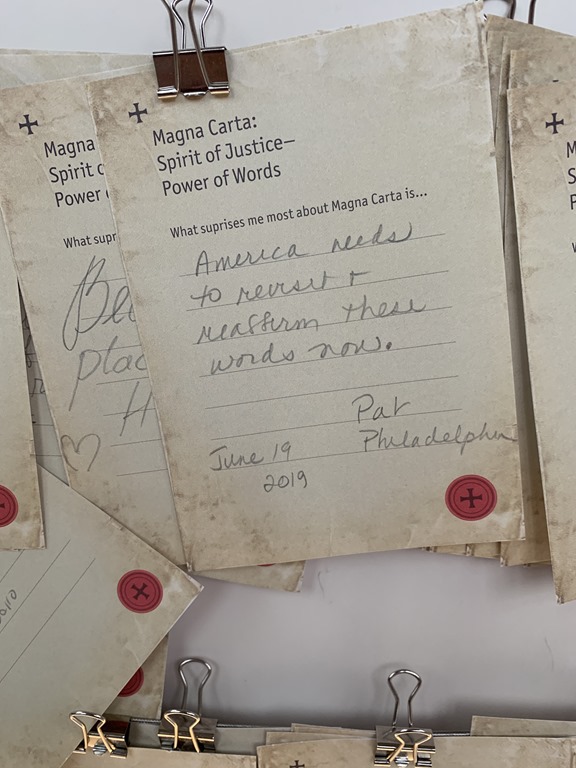 Magna Carta:
Spirit of Justice—
Power of Words
What suprises me most about Magna Carta is...
America needs
to revisit +
reaffirm these
words now.
Pat
Philadelphia
June 19
2019
Magna
Spirit
Power
What supr
plac
H